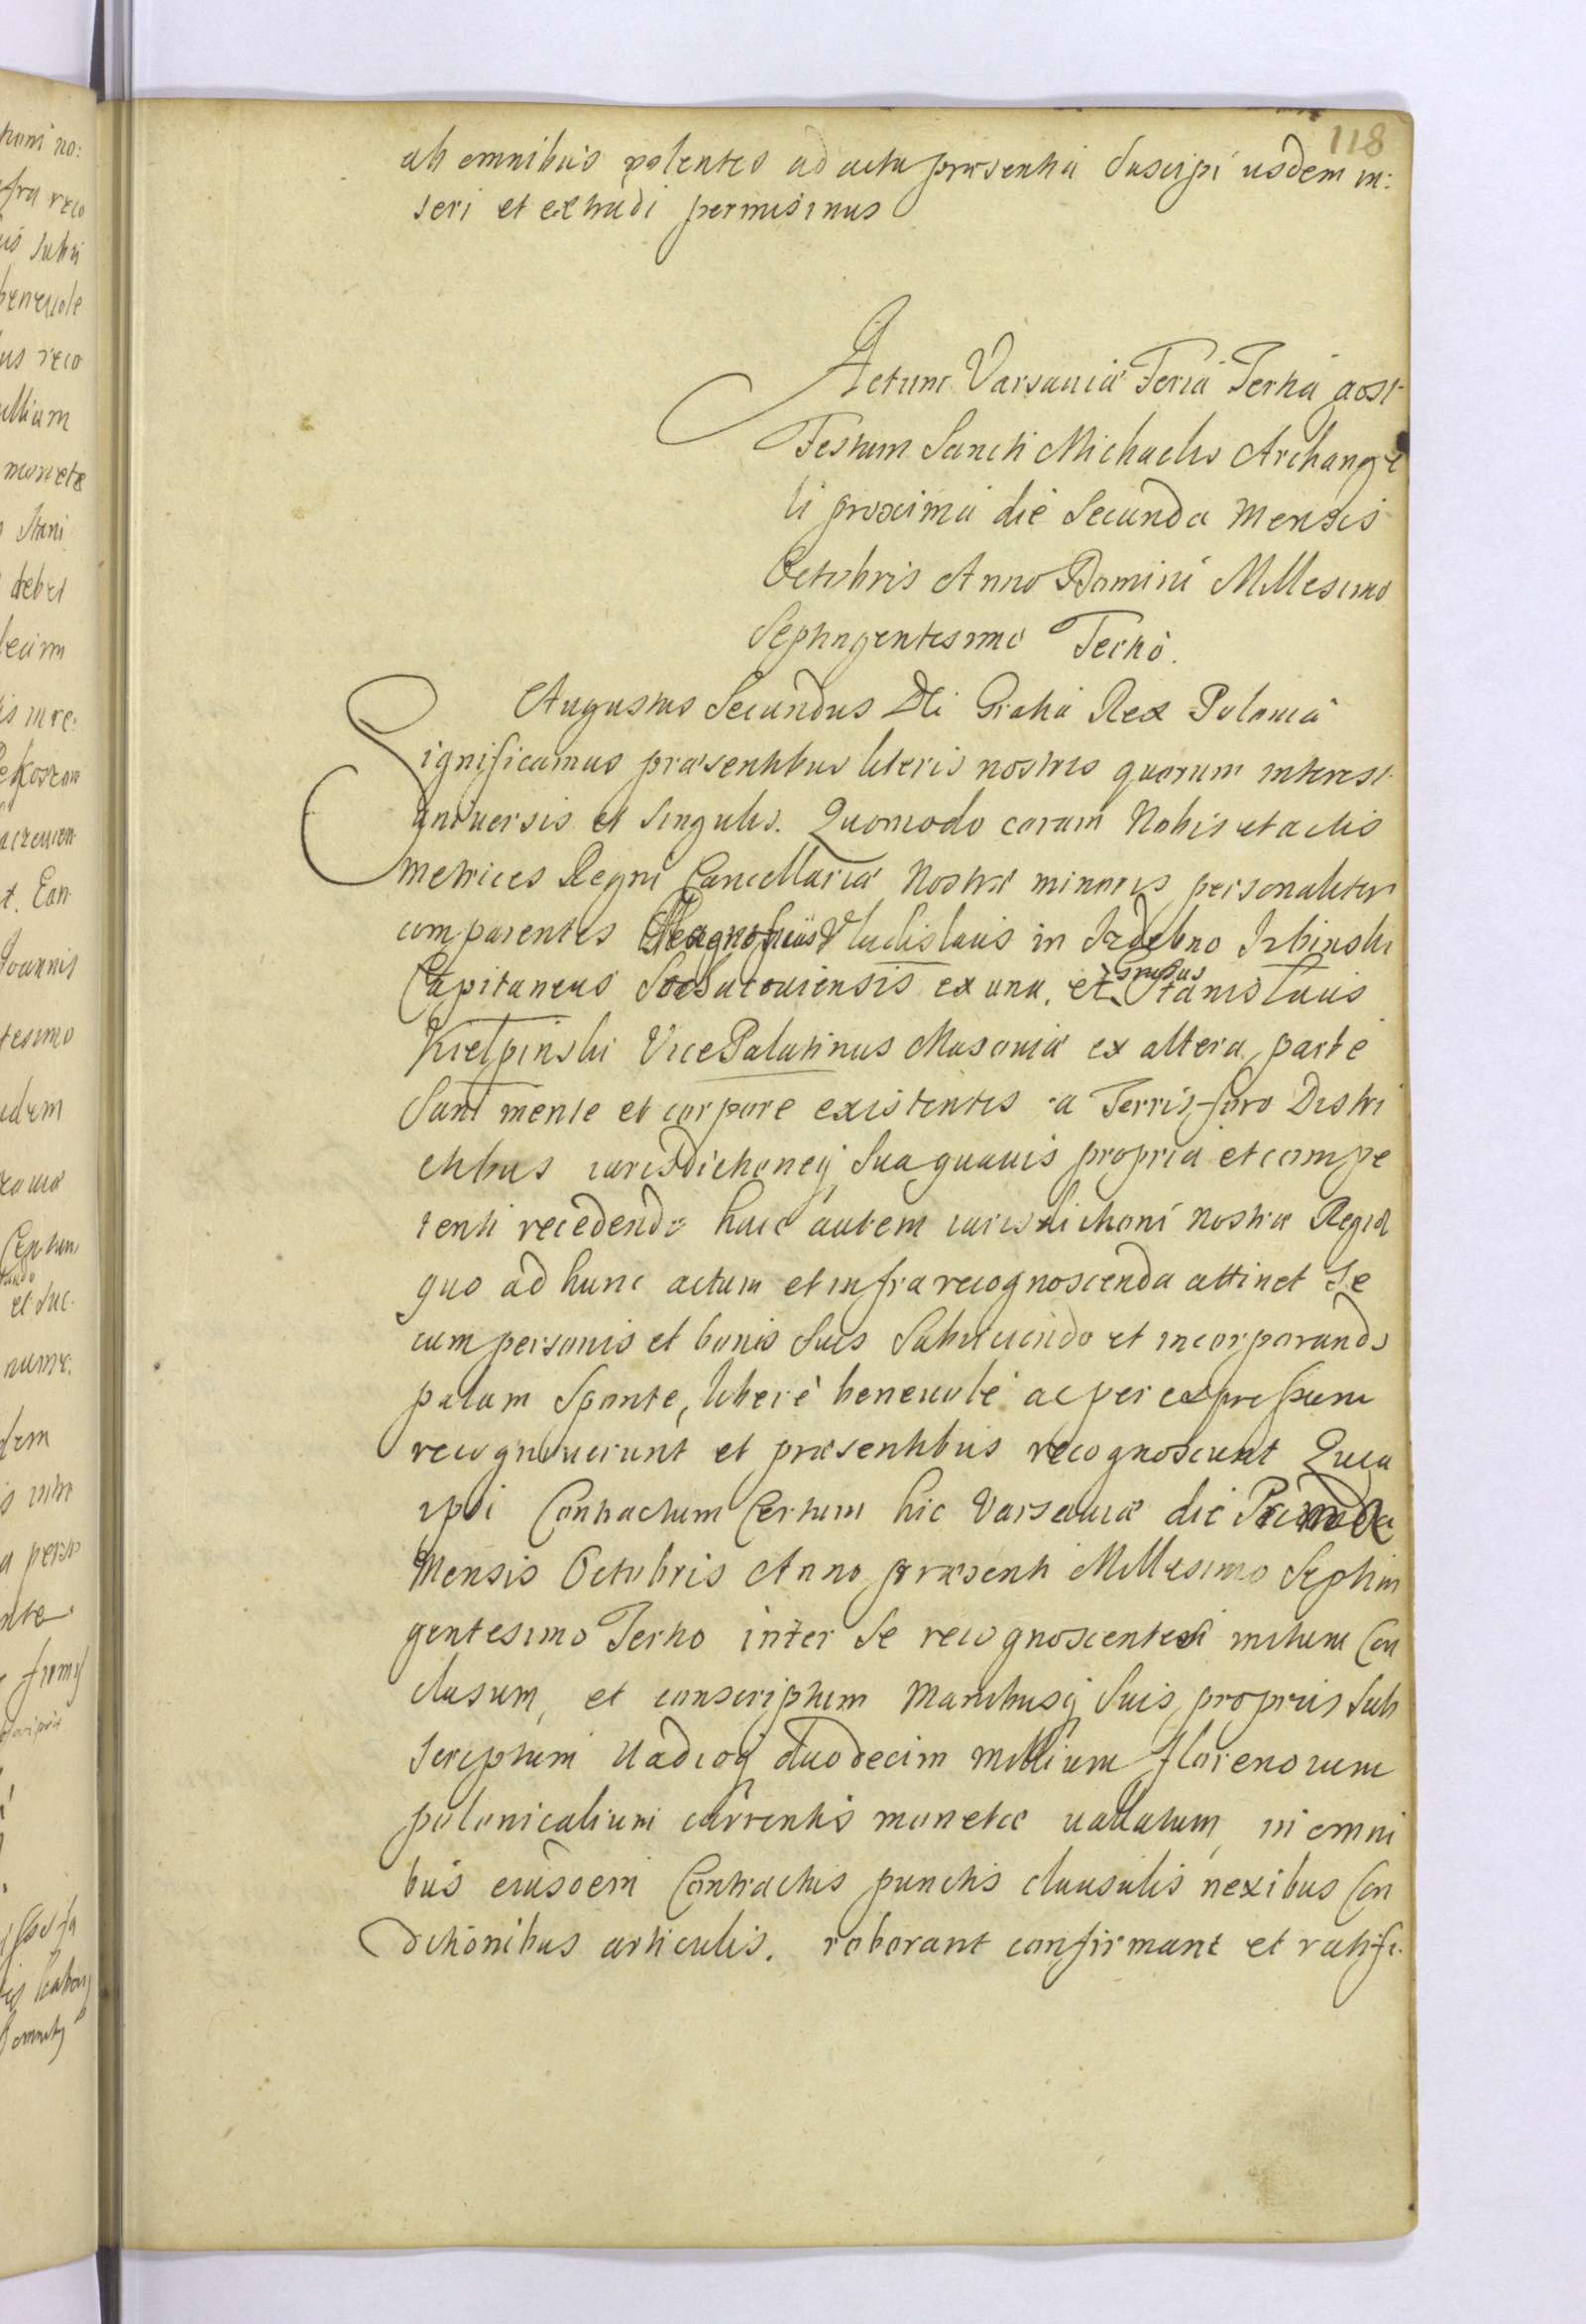 118
ab omnibus volentes ad acta præsentia Suscipi iisdem in:
seri et extradi permisimus
Actum Varsauiæ Feria Tertia post
Festum Sancti Michaelis Archange
li proxima die Secunda Mensis
Octobris Anno Domini Millesimo
Septingentesimo Tertio.
Augustus Secundus Dei Gratia Rex Poloniæ
Significamus præsentibus literis nostris quorum interest
uniuersis et Singulis. Quomodo coram Nobis et actis
metrices Regni Cancellariæ Nostræ minoris personaliter
comparentes Magnificus Vladislaus in Izdebno Izbinski
Capitaneus Sochaczouiensis ex una, et Gnrsus Stanislaus
Kiełpinski VicePalatinus Masouiæ ex altera parte
Sani mente et corpore existentes a Terris foro Distri
ctibus iurisdictioneq Sua quauis propria et compe
tenti recedendo huic autem iurisdictioni Nostræ Regiæ
quo ad hunc actum et infra recognoscenda attinet Se
cum personis et bonis Suis Subiiciendo et incorporando
palam Sponte, libere beneuole ac per expressum
recognouerunt et præsentibus recognoscunt Quia
ipsi Contractum Certum hic Varsauiæ die Prima
Mensis Octobris Anno præsenti Millesimo Septin
gentesimo Tertio inter Se recognoscentes initum Con
clusum, et conscriptum Manibusq Suis propriis Sub
scriptum Vadioq duodecim millium florenorum
polonicalium currentis monetæ uallatum, in omni
bus eiusdem Contractus punctis clausulis nexibus Con
ditionibus articulis. roborant confirmant et ratifi.